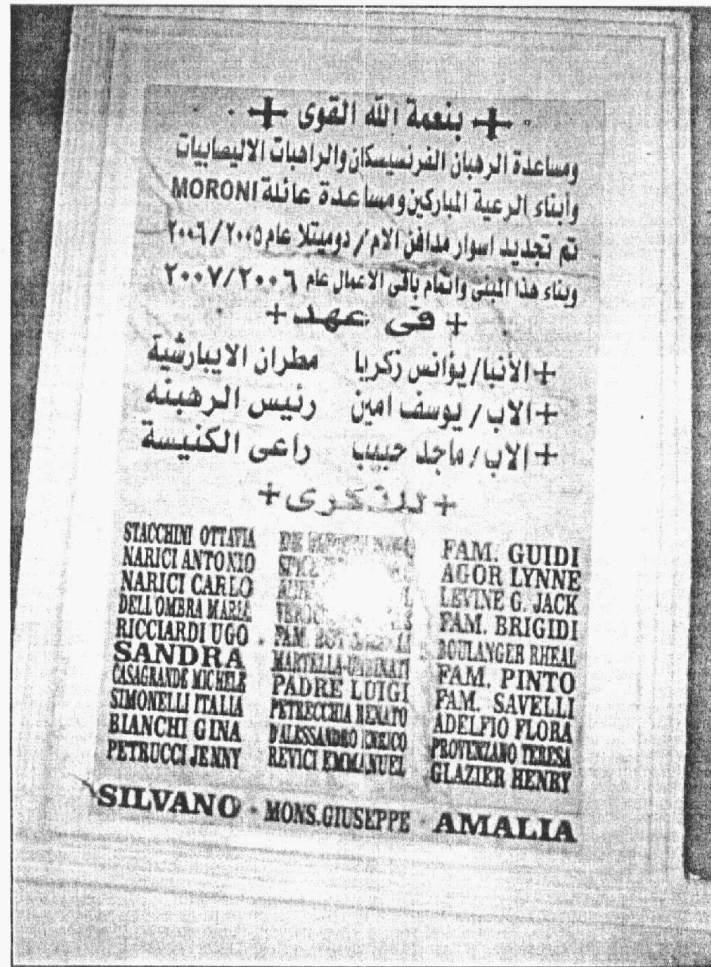 + بنعمة الله القوى +
ومساعدة الرهبان الفرنسيسكان والراهبات الاليصابيات
وأبناء الرعية المباركين ومساعدة عائلة MORONI
تم تجديد اسوار مدافن الام / دوميتلا عام ٢٠٠٥/٢٠٠٦
وبناء هذا المبنى واتمام باقى الاعمال عام ٢٠٠٦/٢٠٠٧
+ فى عهد +
+ الأنبا/ يؤانس زكريا مطران الايبارشية
+ الاب / يوسف امين رئيس الرهبنه
+ الاب / ماجد حبيب راعى الكنيسة
+ للذكرى +
STACCHINI OTTAVIA
NARICI ANTONIO
NARICI CARLO
DELL OMBRA MARIA
RICCIARDI UGO
SANDRA
CASAGRANDE MICHELE
SIMONELLI ITALIA
BIANCHI GINA
PETRUCCI JENNY
FAM.
MARTELLA-URBINATI
PADRE LUIGI
PETRECCHIA RENATO
D'ALESSANDRO ENRICO
REVICI EMMANUEL
FAM. GUIDI
AGOR LYNNE
LEVINE G. JACK
FAM. BRIGIDI
BOULANGER RHEAL
FAM. PINTO
FAM. SAVELLI
ADELFIO FLORA
PROVENZANO TERESA
GLAZIER HENRY
SILVANO - MONS.GIUSEPPE - AMALIA